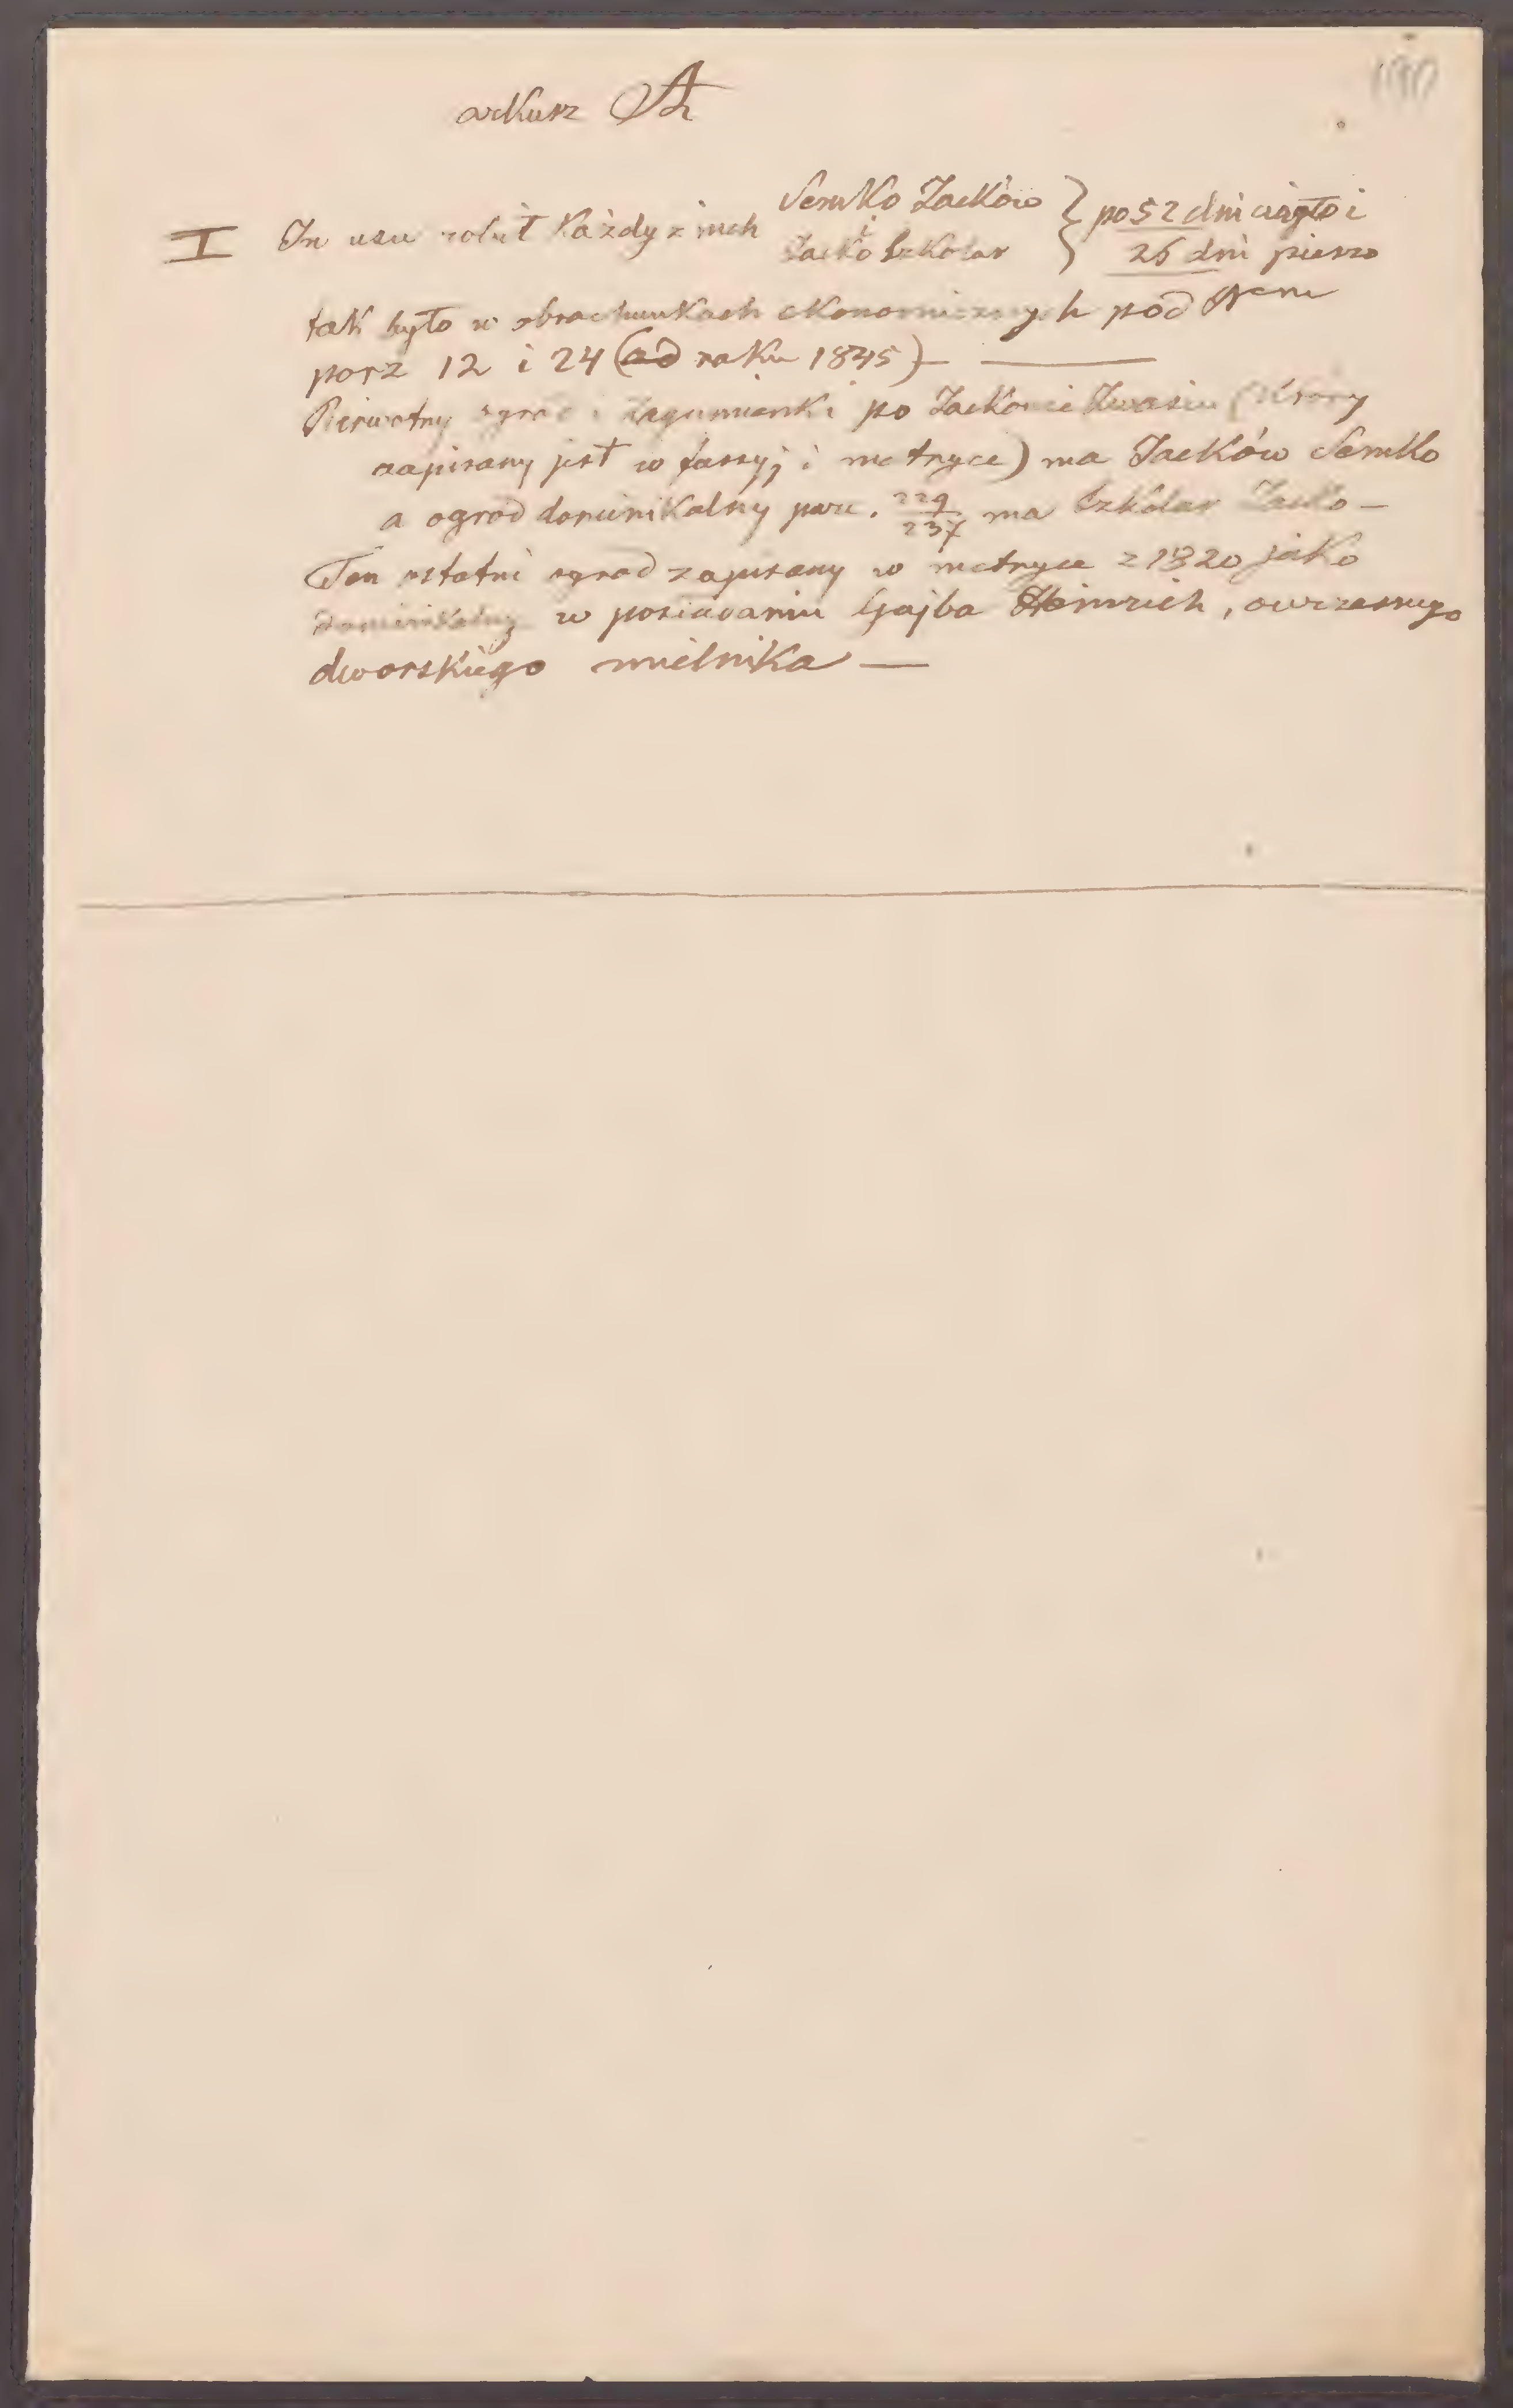 190
arkusz A
I In usu robił Każdy z nich Semko Jacków } po 52 dni ciągło i
Jacko Szkolar } 26 dni pieszo
tak było w obrachunkach ekonomicznych pod Nem
porz 12 i 24 (od roku 1845) —
Pierwotny ogrod i zagumienki po Jackowie (który
zapisany jest w fassyj i metryce) ma Jacków Semko
a ogrod dominikalny parc. 229/237 ma Szkolar Jacko —
Ten ostatni ogrod zapisany w metryce z 1820 jako
dominikalny w posiadaniu Gajba Heinrich, owczesnego
dworskiego mielnika —